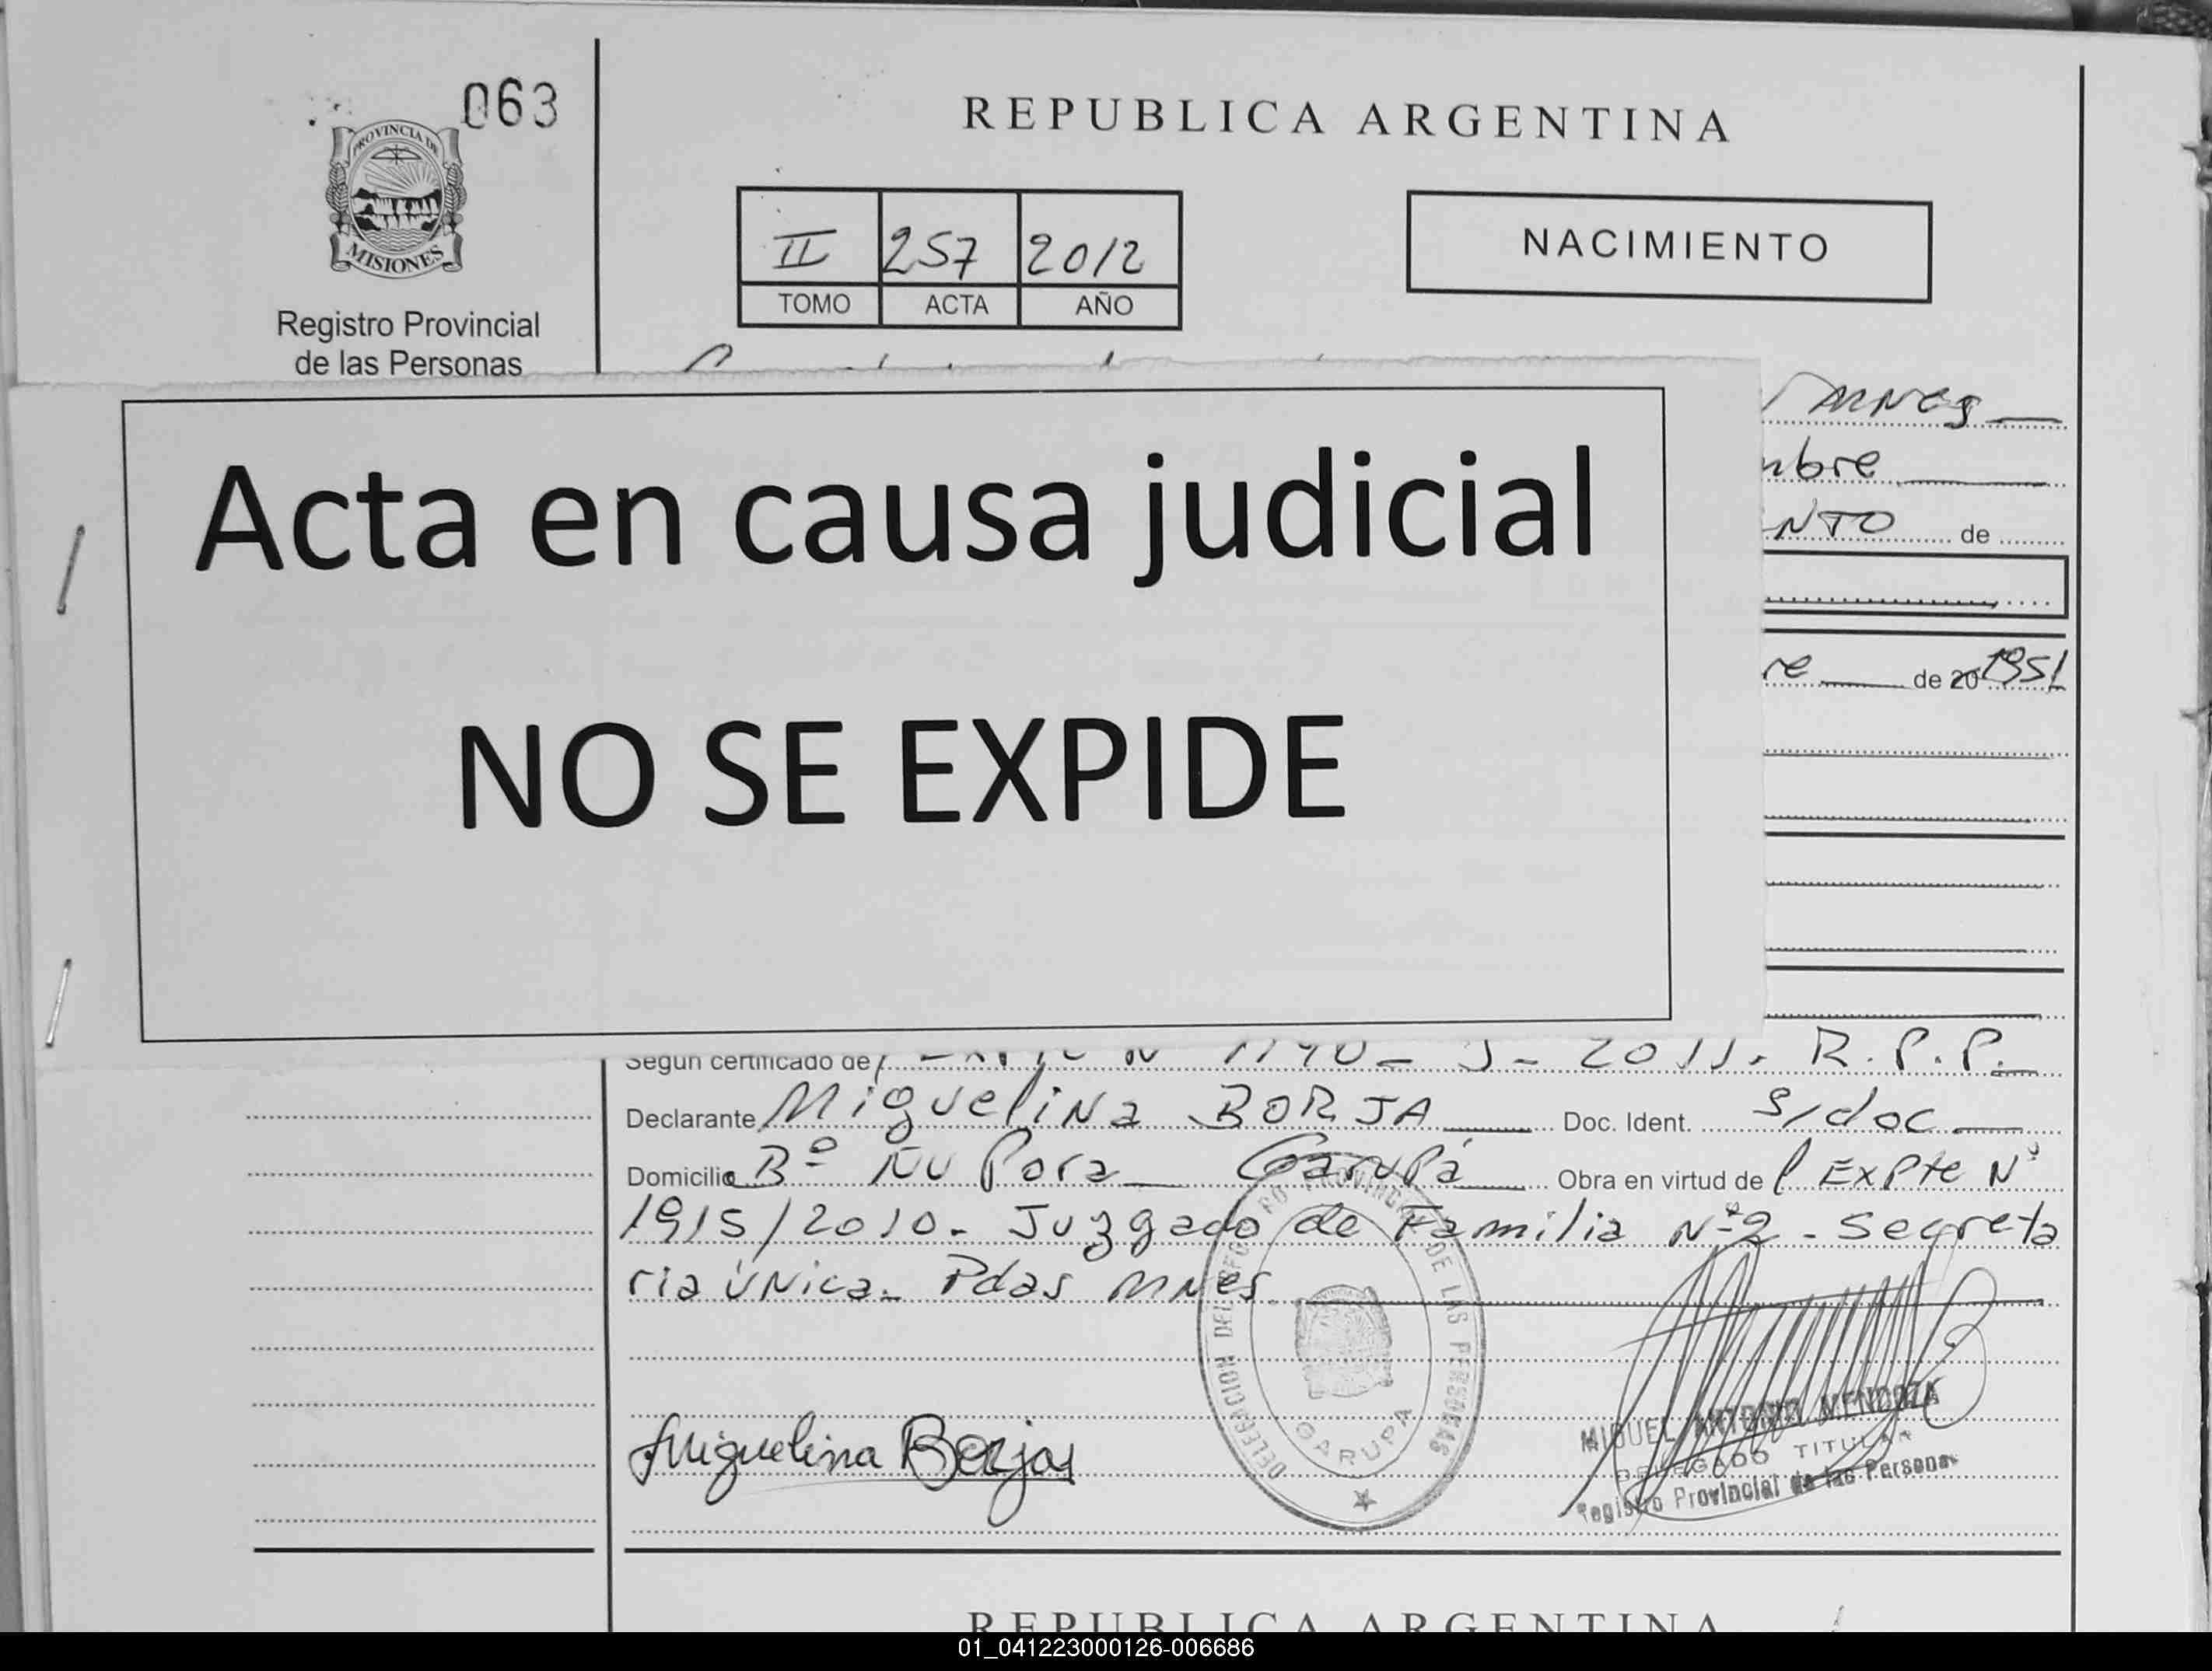 063
PROVINCIA DE
MISIONES
Registro Provincial
de las Personas
REPUBLICA ARGENTINA
II 257 2012
TOMO ACTA AÑO
NACIMIENTO
Acta en causa judicial
NO SE EXPIDE
mbre
NTO de
re de 20 1951
Según certificado de 1140 - J - 2011. R.P.P.
Declarante Miguelina BORJA Doc. Ident. S/doc
Domicilio Bº Ñu Pora Garupá Obra en virtud de l Expte Nº
1915/2010. Juzgado de Familia Nº 2 - Secreta
ria única. Pdas MNes
DELEGACION DEL REGISTRO PROVINCIAL DE LAS PERSONAS
GARUPA
Miguelina Borja
MIGUEL ANTONIO MENDOZA
DELEGADO TITULAR
Registro Provincial de las Personas
REPUBLICA ARGENTINA
01_041223000126-006686